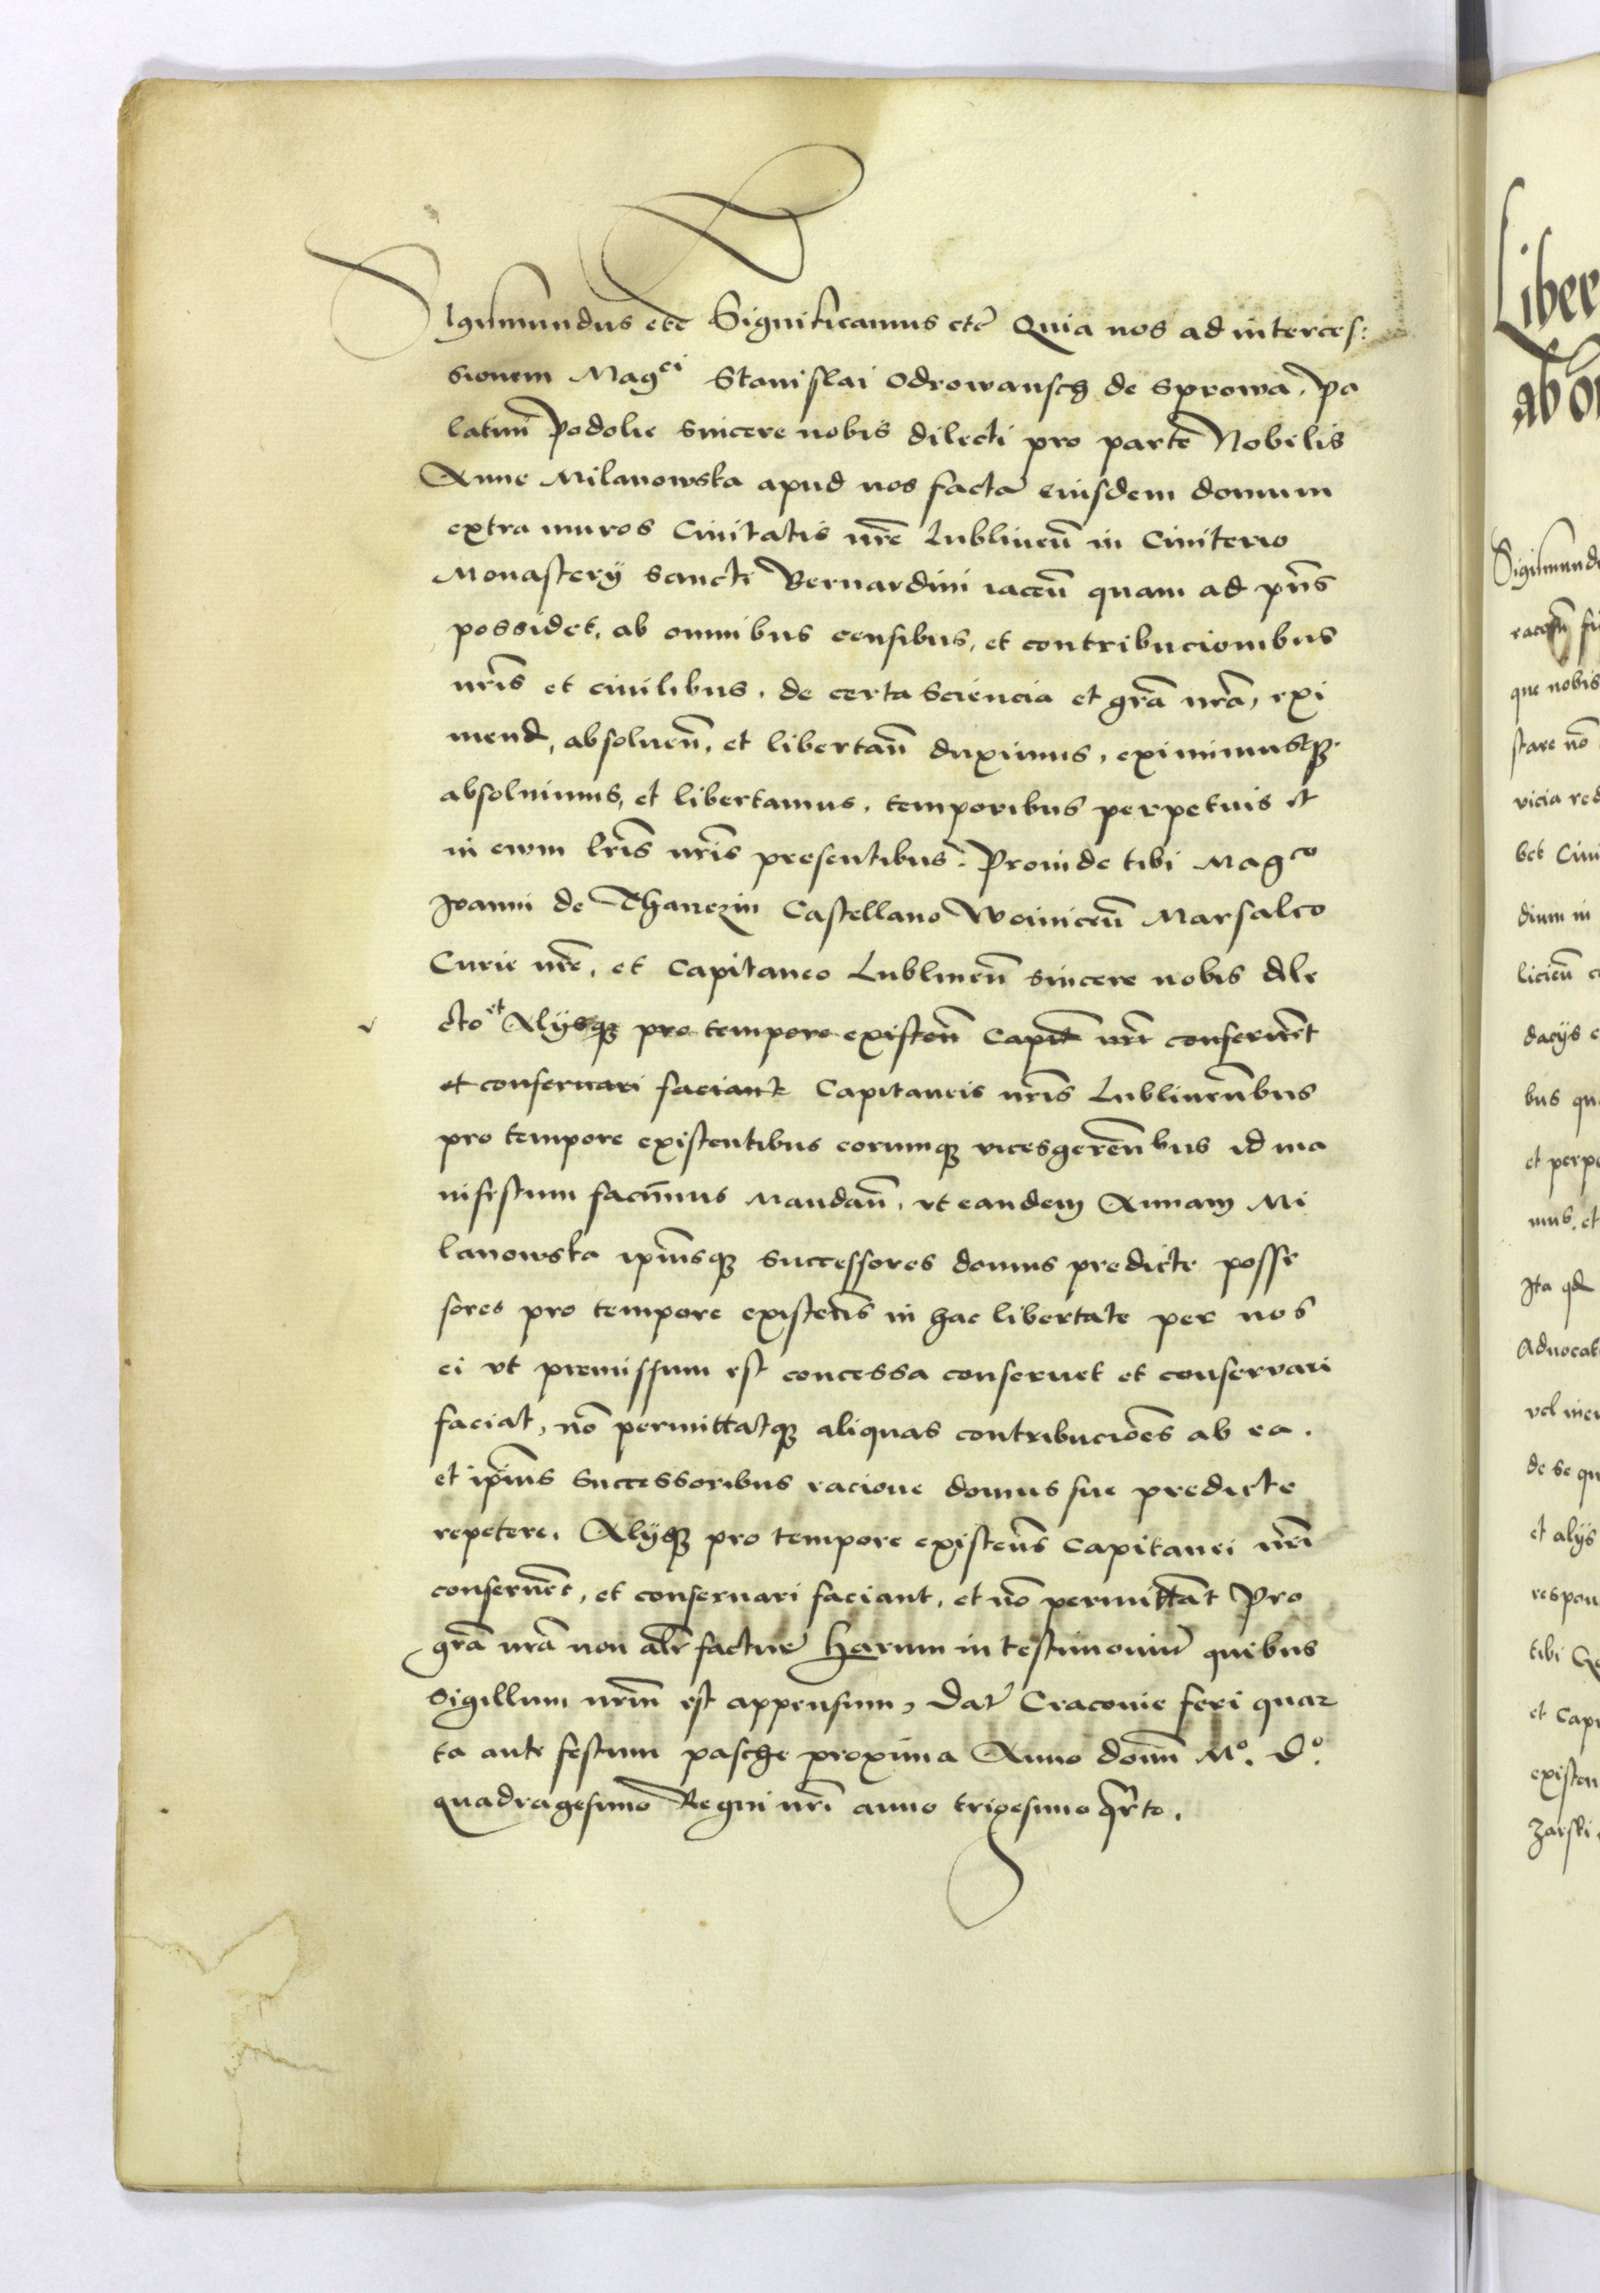 Sigismundus etc Significamus etc Quia nos ad interces:
sionem Mag^ci Stanislai Odrowansch de Sprowa, pa
latini Podolie sincere nobis dilecti pro parte Nobilis
Anne Milanowska apud nos facta eiusdem domum
extra muros Ciuitatis nr̃e Lublineñ in Cimiterio
Monasterÿ Sancti Bernardini iaceñ quam ad pñs
possidet, ab omnibus censibus, et contribucionibus
nr̃is et ciuilibus, de certa sciencia et grã nrã, exi
mend, absolueñ, et libertañ duximus, eximimusq3
absoluimus, et libertamus, temporibus perpetuis et
in ewm lr̃is nr̃is presentibus. Proinde tibi Mag^co
Joanni de Thanczin Castellano Woiniceñ Marsalco
Curie nr̃e, et Capitaneo Lublineñ sincere nobis dile
cto et Alÿsq3 pro tempore existeñ Capit nr̃i conseruẽt
et conseruari faciant Capitaneis nr̃is Lublineñbus
pro tempore existentibus eorumq3 vicesgereñbus id ma
nifestum facimus Mandañ, vt eandem Annam Mi
lanowska ip̃iusq3 successores domus predicte posse
sores pro tempore existeñs in hac libertate per nos
ei vt premissum est concessa conseruet et conservari
faciat, nõ permittatq3 aliquas contribuciões ab ea.
et ip̃ius successoribus racione domus sue predicte
repetere. Alÿq3 pro tempore existeñs Capitanei nr̃i
conseruẽt, et conseruari faciant, et nõ permittãt Pro
grã nrã non alr̃ factur̃ Harum in testimoniũ quibus
Sigillum nr̃m est appensum, Dat̃ Cracouie feri quar
ta ante festum pasche proxima Anno domĩ M°. D°.
quadragesimo Regni nr̃i anno tricesimo qr̃to.
Liber
ab o
Sigismundu
que nobis
stare nõ
vicia red
bet Ciui
dium in
dacÿs
bus qu
et perpe
mus, et
Ita qd
Aduocat
de se qu
et alÿs
respon
tibi
et Capi
existen